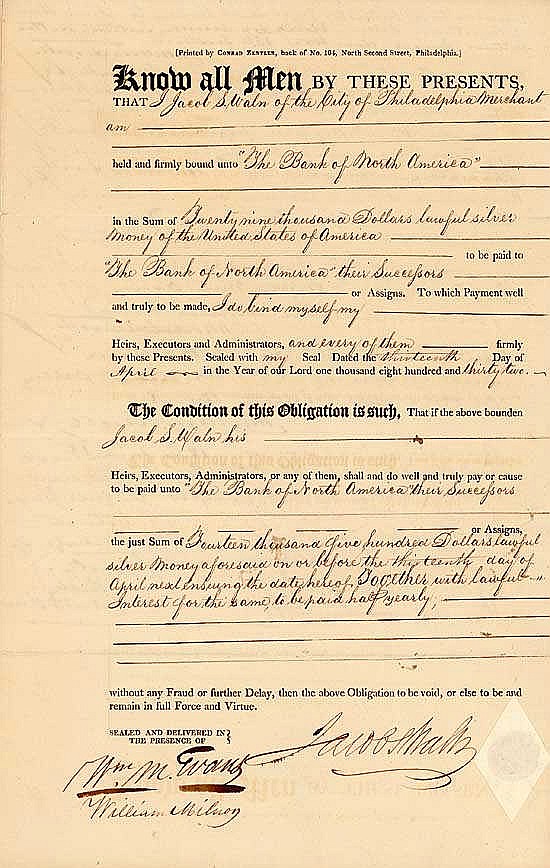 [Printed by CONRAD ZENTLER, back of No. 104, North Second Street, Philadelphia.]
Know all Men BY THESE PRESENTS,
THAT I Jacob S. Waln of the City of Philadelphia Merchant
am
held and firmly bound unto "The Bank of North America"
in the Sum of Twenty nine thousand Dollars lawful silver
Money of the United States of America
to be paid to
"The Bank of North America" their Successors
or Assigns. To which Payment well
and truly to be made, I do bind myself my
Heirs, Executors and Administrators, and every of them firmly
by these Presents. Sealed with my Seal Dated the thirteenth Day of
April in the Year of our Lord one thousand eight hundred and thirty two.
The Condition of this Obligation is such, That if the above bounden
Jacob S. Waln his
Heirs, Executors, Administrators, or any of them, shall and do well and truly pay or cause
to be paid unto "The Bank of North America their Successors
or Assigns,
the just Sum of Fourteen thousand five hundred Dollars lawful
silver Money aforesaid on or before the thirteenth day of
April next ensuing the date hereof, Together with lawful
Interest for the same, to be paid half yearly;
without any Fraud or further Delay, then the above Obligation to be void, or else to be and
remain in full Force and Virtue.
SEALED AND DELIVERED IN
THE PRESENCE OF
Jacob S Waln
Wm. M. Evans
William Milnor